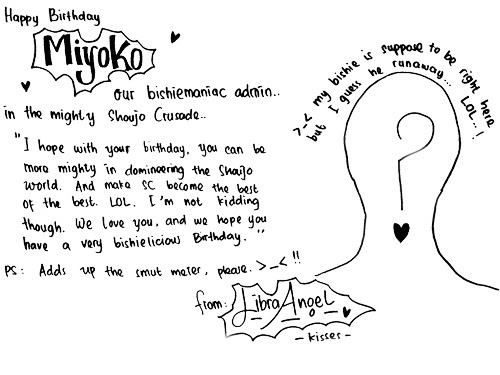 Happy Birthday
Miyoko
our bishiemaniac admin..
in the mighty Shoujo Crusade..
"I hope with your birthday, you can be
more mighty in domineering the Shoujo
world. And make SC become the best
of the best. LOL. I'm not kidding
though. We love you, and we hope you
have a very bishielicious Birthday."
PS: Adds up the smut meter, please. >_< !!
from: Libra Angel
- kisser -
>_< my bishie is suppose to be right here
but I guess he runaway... LOL..!
?